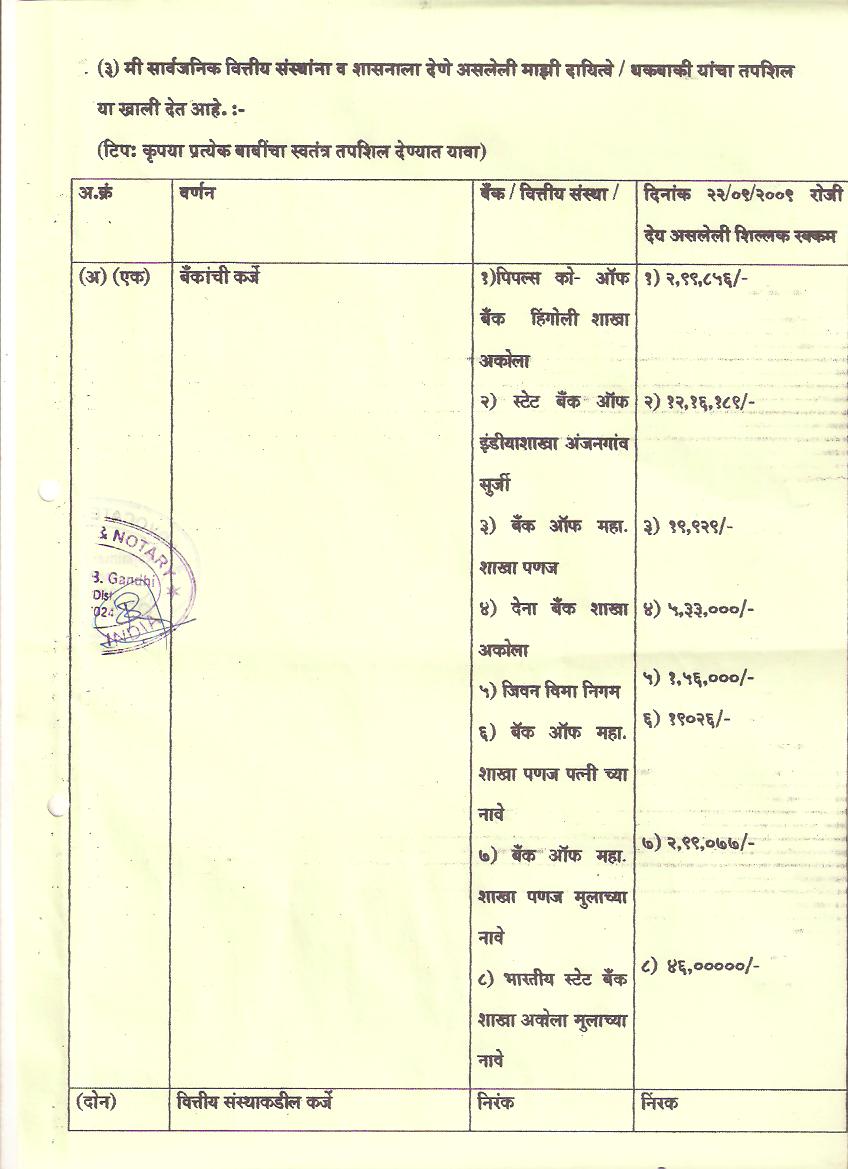 (३) मी सार्वजनिक वित्तीय संस्थांना व शासनाला देणे असलेली माझी दायित्वे / थकबाकी यांचा तपशिल
या खाली देत आहे. :-
(टिप: कृपया प्रत्येक बाबींचा स्वतंत्र तपशिल देण्यात यावा)
अ.क्रं वर्णन बँक / वित्तीय संस्था / दिनांक २२/०९/२००९ रोजी
देय असलेली शिल्लक रक्कम
(अ) (एक) बँकांची कर्जे १)पिपल्स को- ऑफ १) २,९९,८५६/-
बँक हिंगोली शाखा
अकोला
२) स्टेट बँक ऑफ २) १२,१६,१८९/-
इंडीयाशाखा अंजनगांव
सुर्जी
३) बँक ऑफ महा. ३) १९,९२९/-
शाखा पणज
४) देना बँक शाखा ४) ५,३३,०००/-
अकोला
५) जिवन विमा निगम ५) १,५६,०००/-
६) बॅक ऑफ महा. ६) १९०२६/-
शाखा पणज पत्नी च्या
नावे
७) बँक ऑफ महा. ७) २,९९,०७७/-
शाखा पणज मुलाच्या
नावे
८) भारतीय स्टेट बँक ८) ४६,०००००/-
शाखा अकोला मुलाच्या
नावे
(दोन) वित्तीय संस्थाकडील कर्जे निरंक निंरक
& NOTARY
B. Gandhi
Dist
024
INDIA